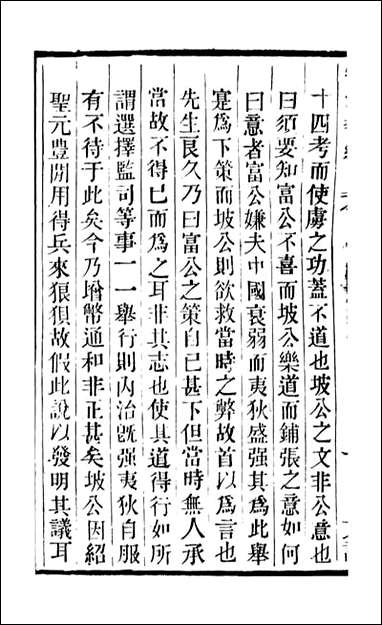 十四考而使虜之功蓋不道也坡公之文非公意也
曰須要知富公不喜而坡公樂道而鋪張之意如何
曰意者富公嫌夫中國衰弱而夷狄盛强其爲此舉
寔爲下策而坡公則欲救當時之弊故首以爲言也
先生良久乃曰富公之策自已甚下但當時無人承
當故不得已而爲之耳非其志也使其道得行如所
謂選擇監司等事一一舉行則內治旣强夷狄自服
有不待于此矣今乃增幣通和非正甚矣坡公因紹
聖元豐閒用得兵來狼狽故假此說以發明其議耳